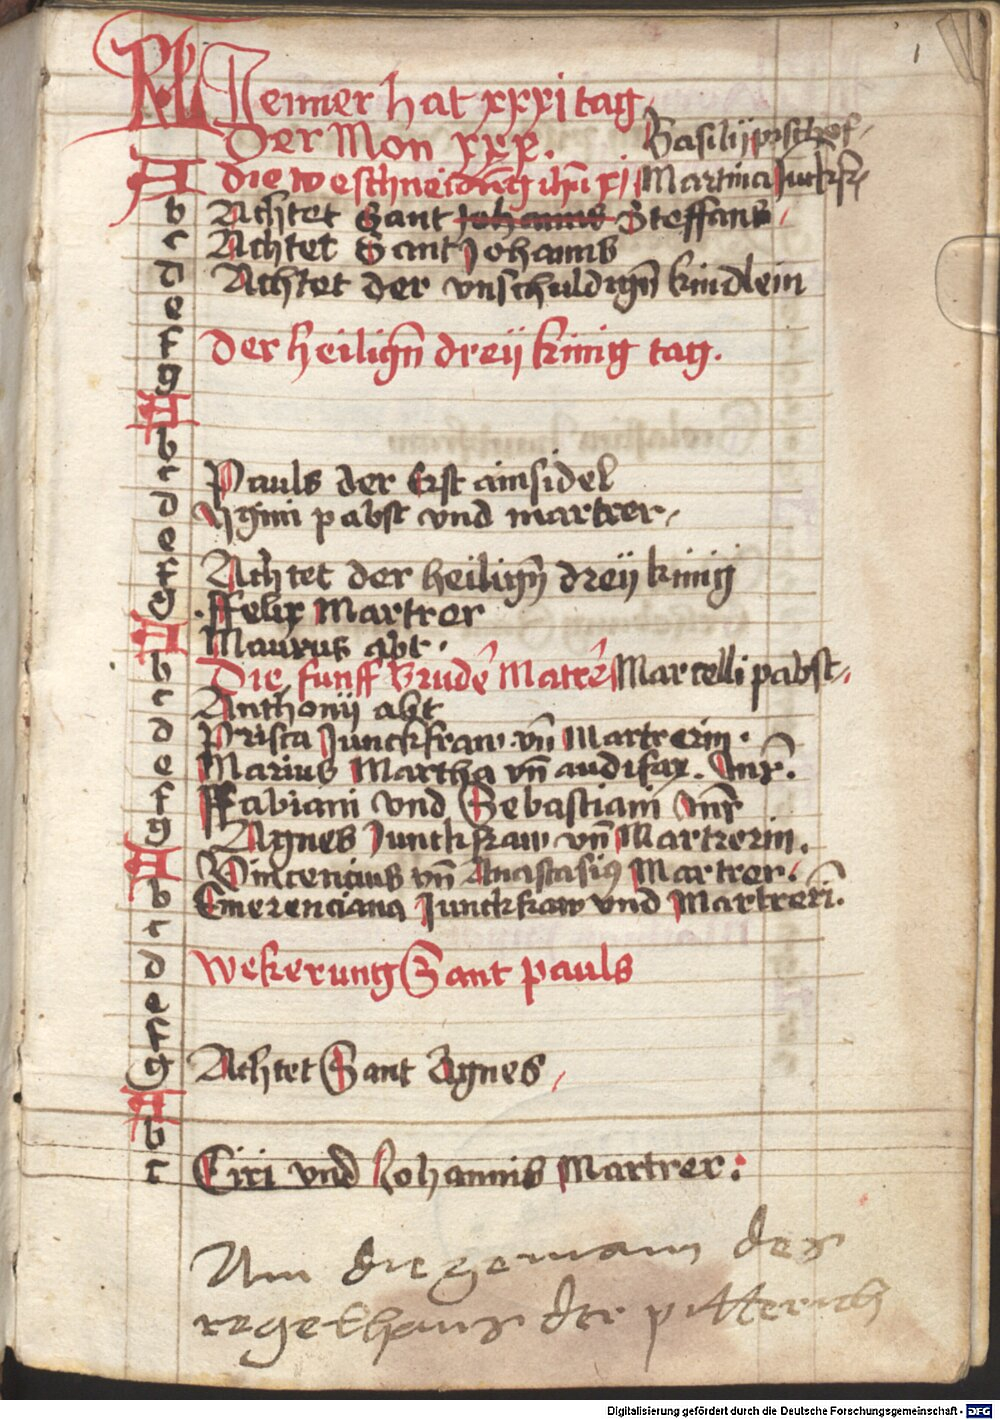 1
KL Jenner hat xxxj tag
Der Mon xxx. Basilij pischof
A die weschneidung ihu xp̄i Martina Junckfr
b Achtet Sant Johanns Steffans
c Achtet Sant Johanns
d Achtet der vnschuldign̄ kindlein
e
f Der heilign̄ dreij king tag.
g
A
b
c Pauls der Erst ainsidel
d Ygini pabst vnd martrer
e
f Achtet der heilign̄ dreij king
g ffelix Martrer
A Maurus abt.
b Die funff Brude͂ Matre͂ Marcelli pabst
c Anthonij abt
d Prisca Junckfraw vn̄ Martrerin.
e Marius Martha vn̄ audifax. mr̄.
f ffabiani vnd Sebastiani mr̄
g Agnes Junckfraw vn̄ Martrerin.
A Vincencius vn̄ Anastasiꝰ Martrer.
b Emerenciana Junckfraw vnd Martreri͂.
c
d wekerung Sant pauls
e
f
g Achtet Sant Agnes
A
b
c Ciri vnd Johannis Martrer:
Inn die gemain des
regelhaus der pitterich
Digitalisierung gefördert durch die Deutsche Forschungsgemeinschaft - DFG